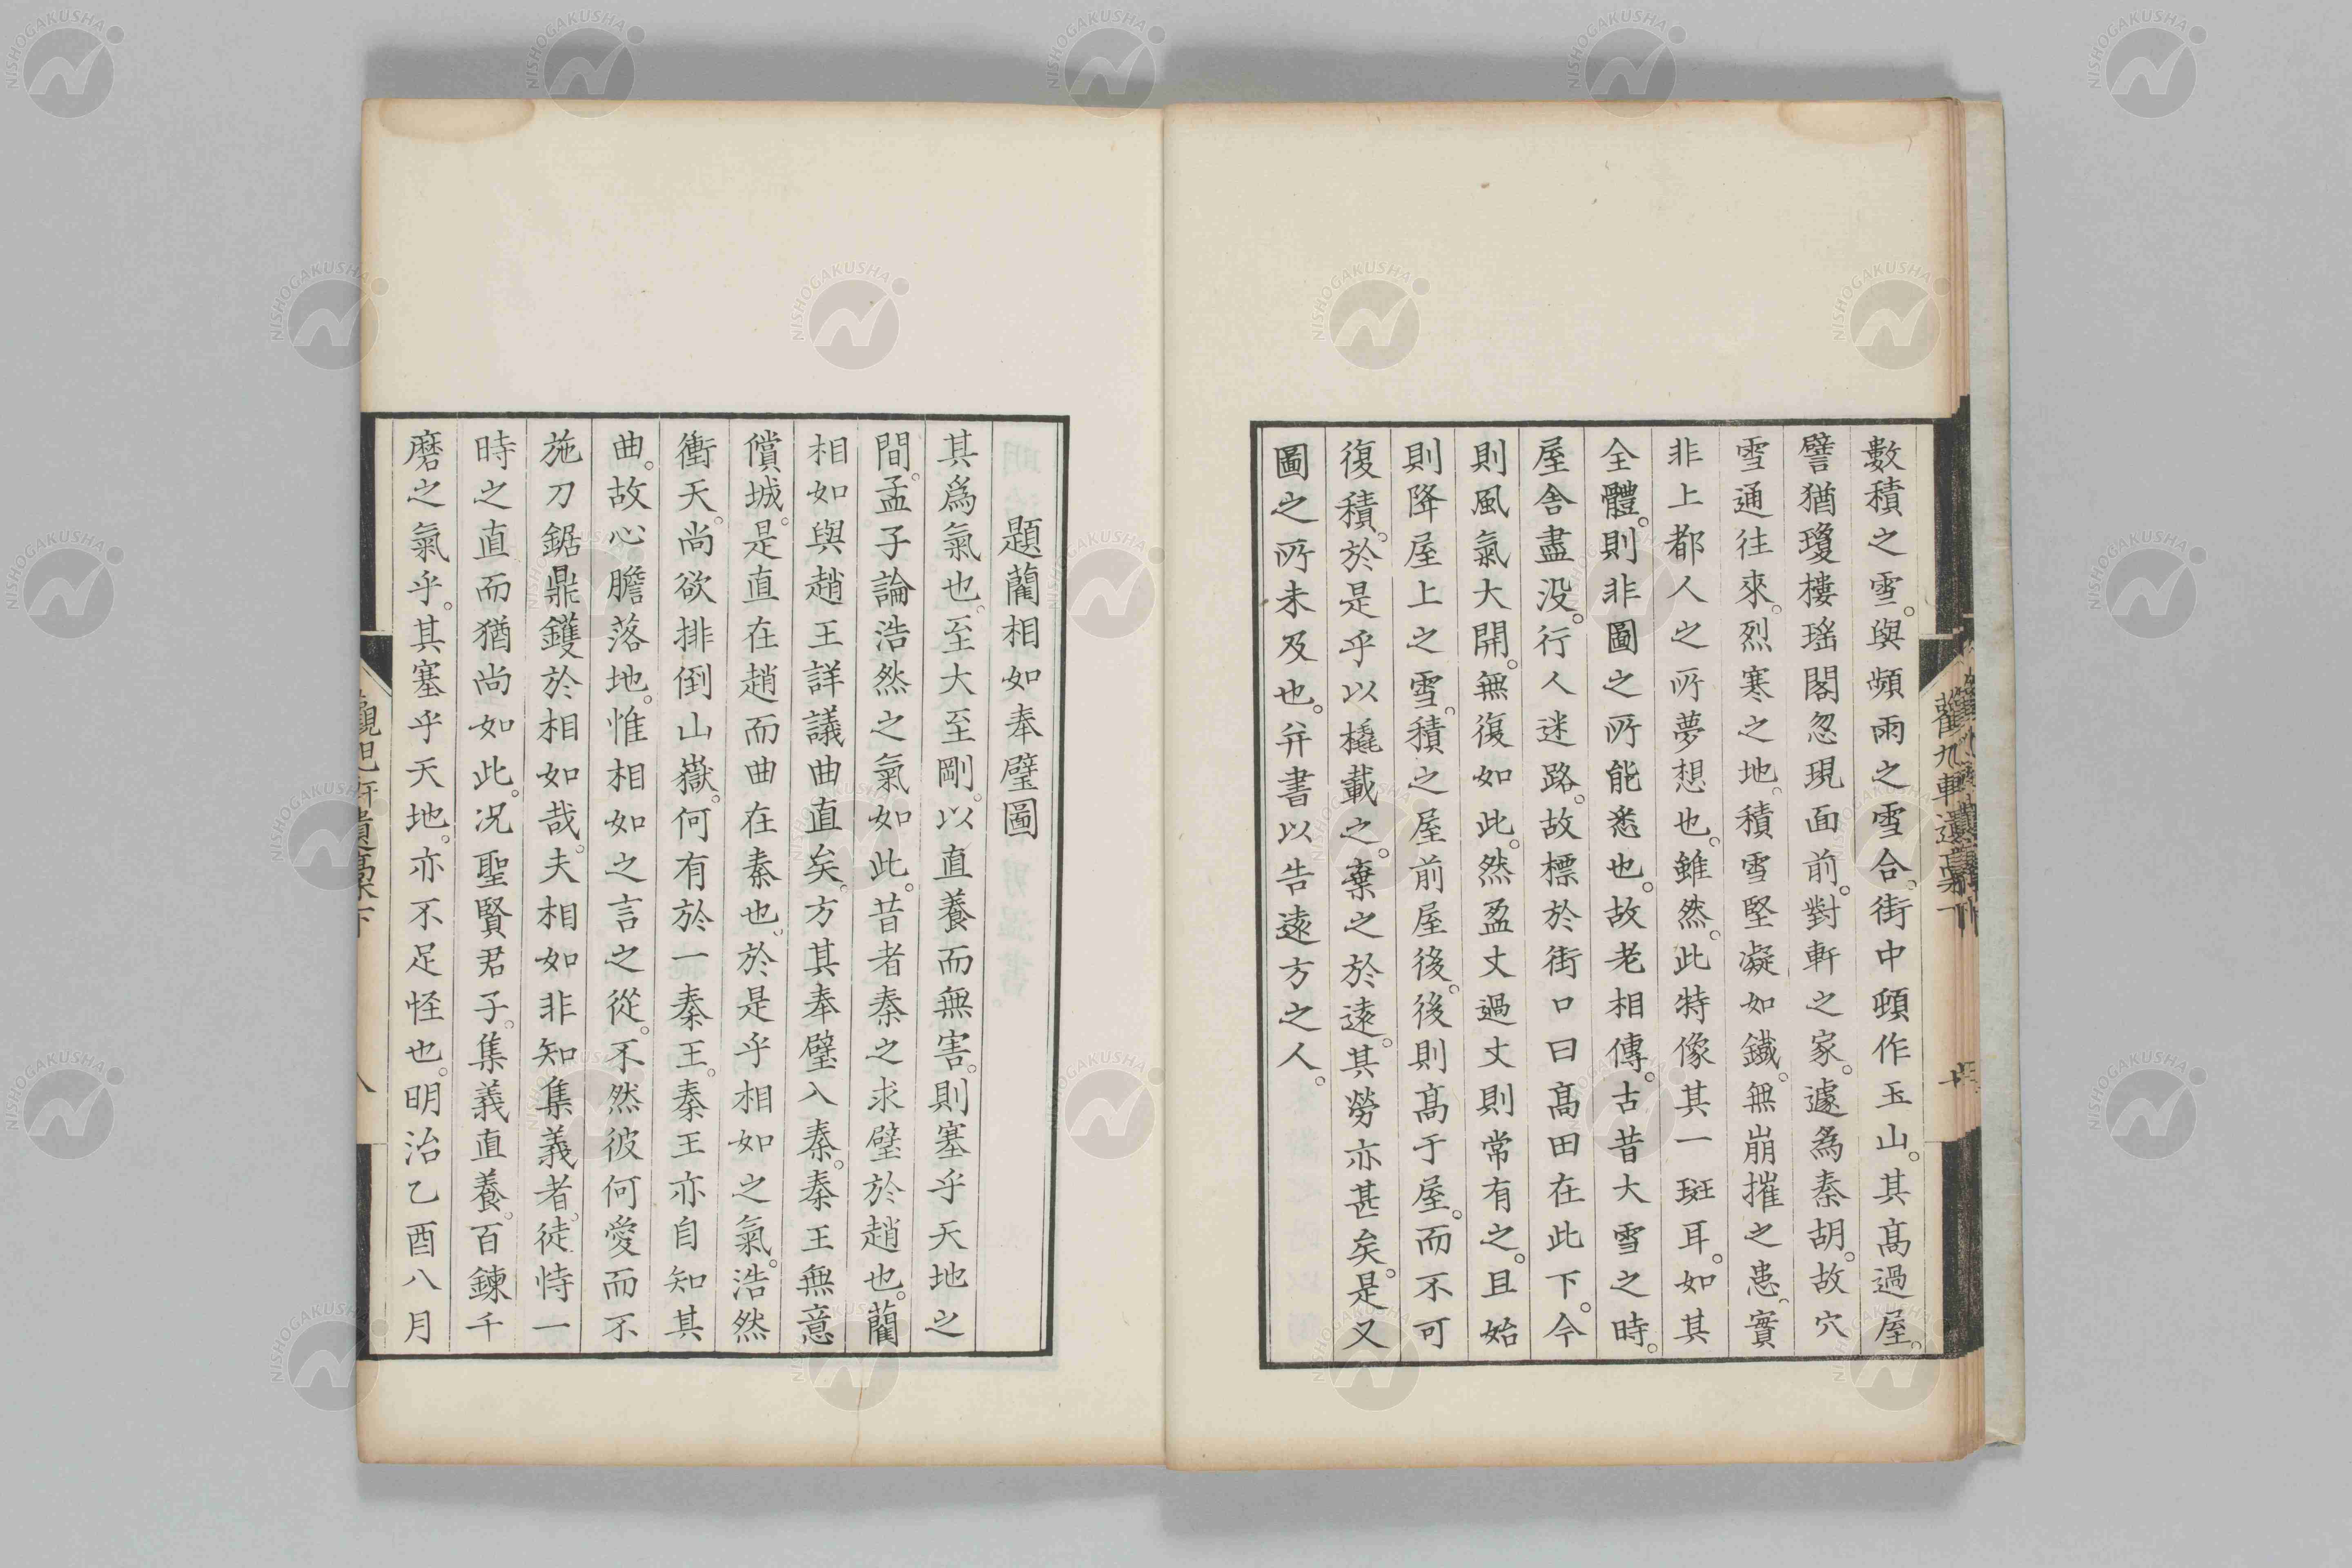 數積之雪。與頻雨之雪合。街中頓作玉山。其髙過屋。
譬猶瓊樓瑤閣忽現面前。對軒之家。遽爲秦胡。故穴
雪通往來。烈寒之地。積雪堅凝如鐵。無崩摧之患。實
非上都人之所夢想也。雖然。此特像其一斑耳。如其
全體。則非圖之所能悉也。故老相傳。古昔大雪之時。
屋舍盡没。行人迷路。故標於街口曰髙田在此下。今
則風氣大開。無復如此。然盈丈過丈則常有之。且始
則降屋上之雪。積之屋前屋後。後則髙于屋。而不可
復積。於是乎以橇載之。棄之於遠。其勞亦甚矣。是又
圖之所未及也。并書以告遠方之人。
題藺相如奉璧圖
其爲氣也。至大至剛。以直養而無害。則塞乎天地之
間。孟子論浩然之氣如此。昔者秦之求璧於趙也。藺
相如與趙王詳議曲直矣。方其奉璧入秦。秦王無意
償城。是直在趙而曲在秦也。於是乎相如之氣。浩然
衝天。尚欲排倒山嶽。何有於一秦王。秦王亦自知其
曲。故心膽落地。惟相如之言之從。不然彼何愛而不
施刀鋸鼎鑊於相如哉。夫相如非知集義者。徒恃一
時之直而猶尚如此。况聖賢君子。集義直養。百鍊千
磨之氣乎。其塞乎天地。亦不足怪也。明治乙酉八月
八
NISHOGAKUSHA